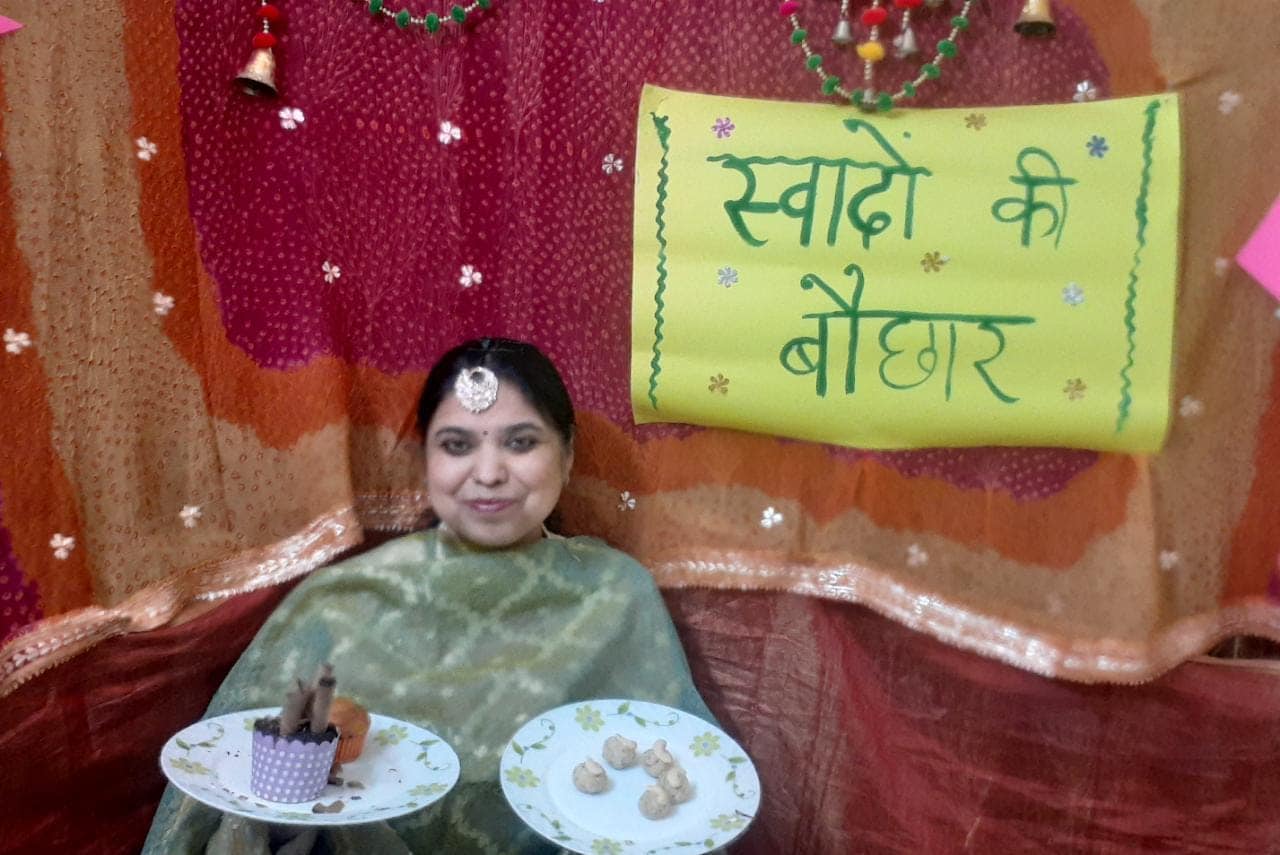 स्वादों की
बौछार